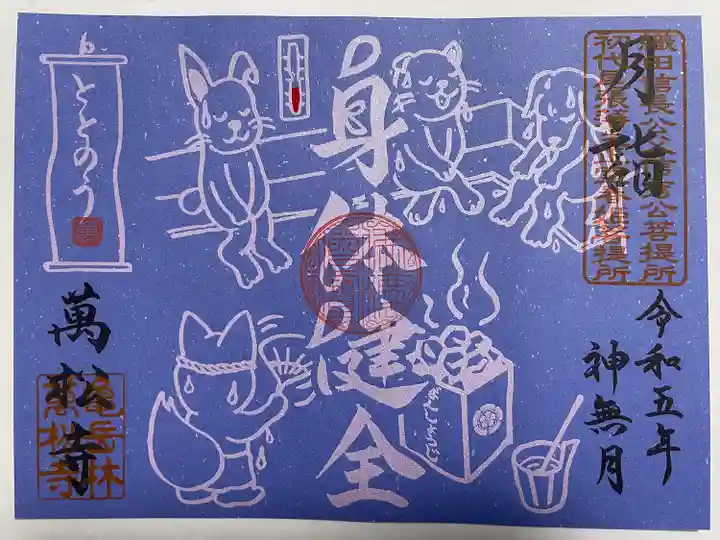 月詣
織田信長公父信秀公菩提所
初代尾張藩主正室春姫菩提所
令和五年
神無月
身体健全
ととのう
萬松寺
亀岳林
萬松寺